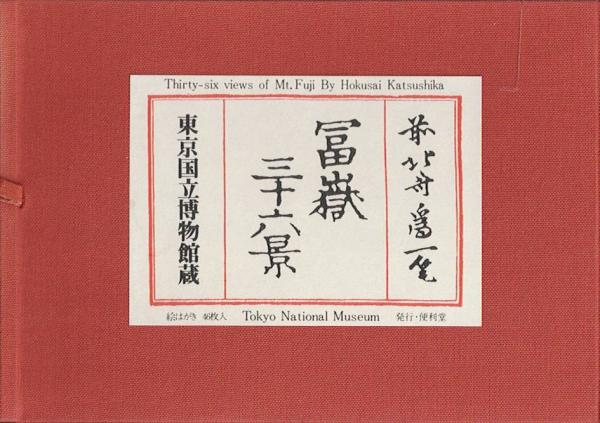 Thirty-six views of Mt. Fuji By Hokusai Katsushika
前北斎為一筆
冨嶽
三十六景
東京国立博物館蔵
絵はがき 46枚入
Tokyo National Museum
発行・便利堂